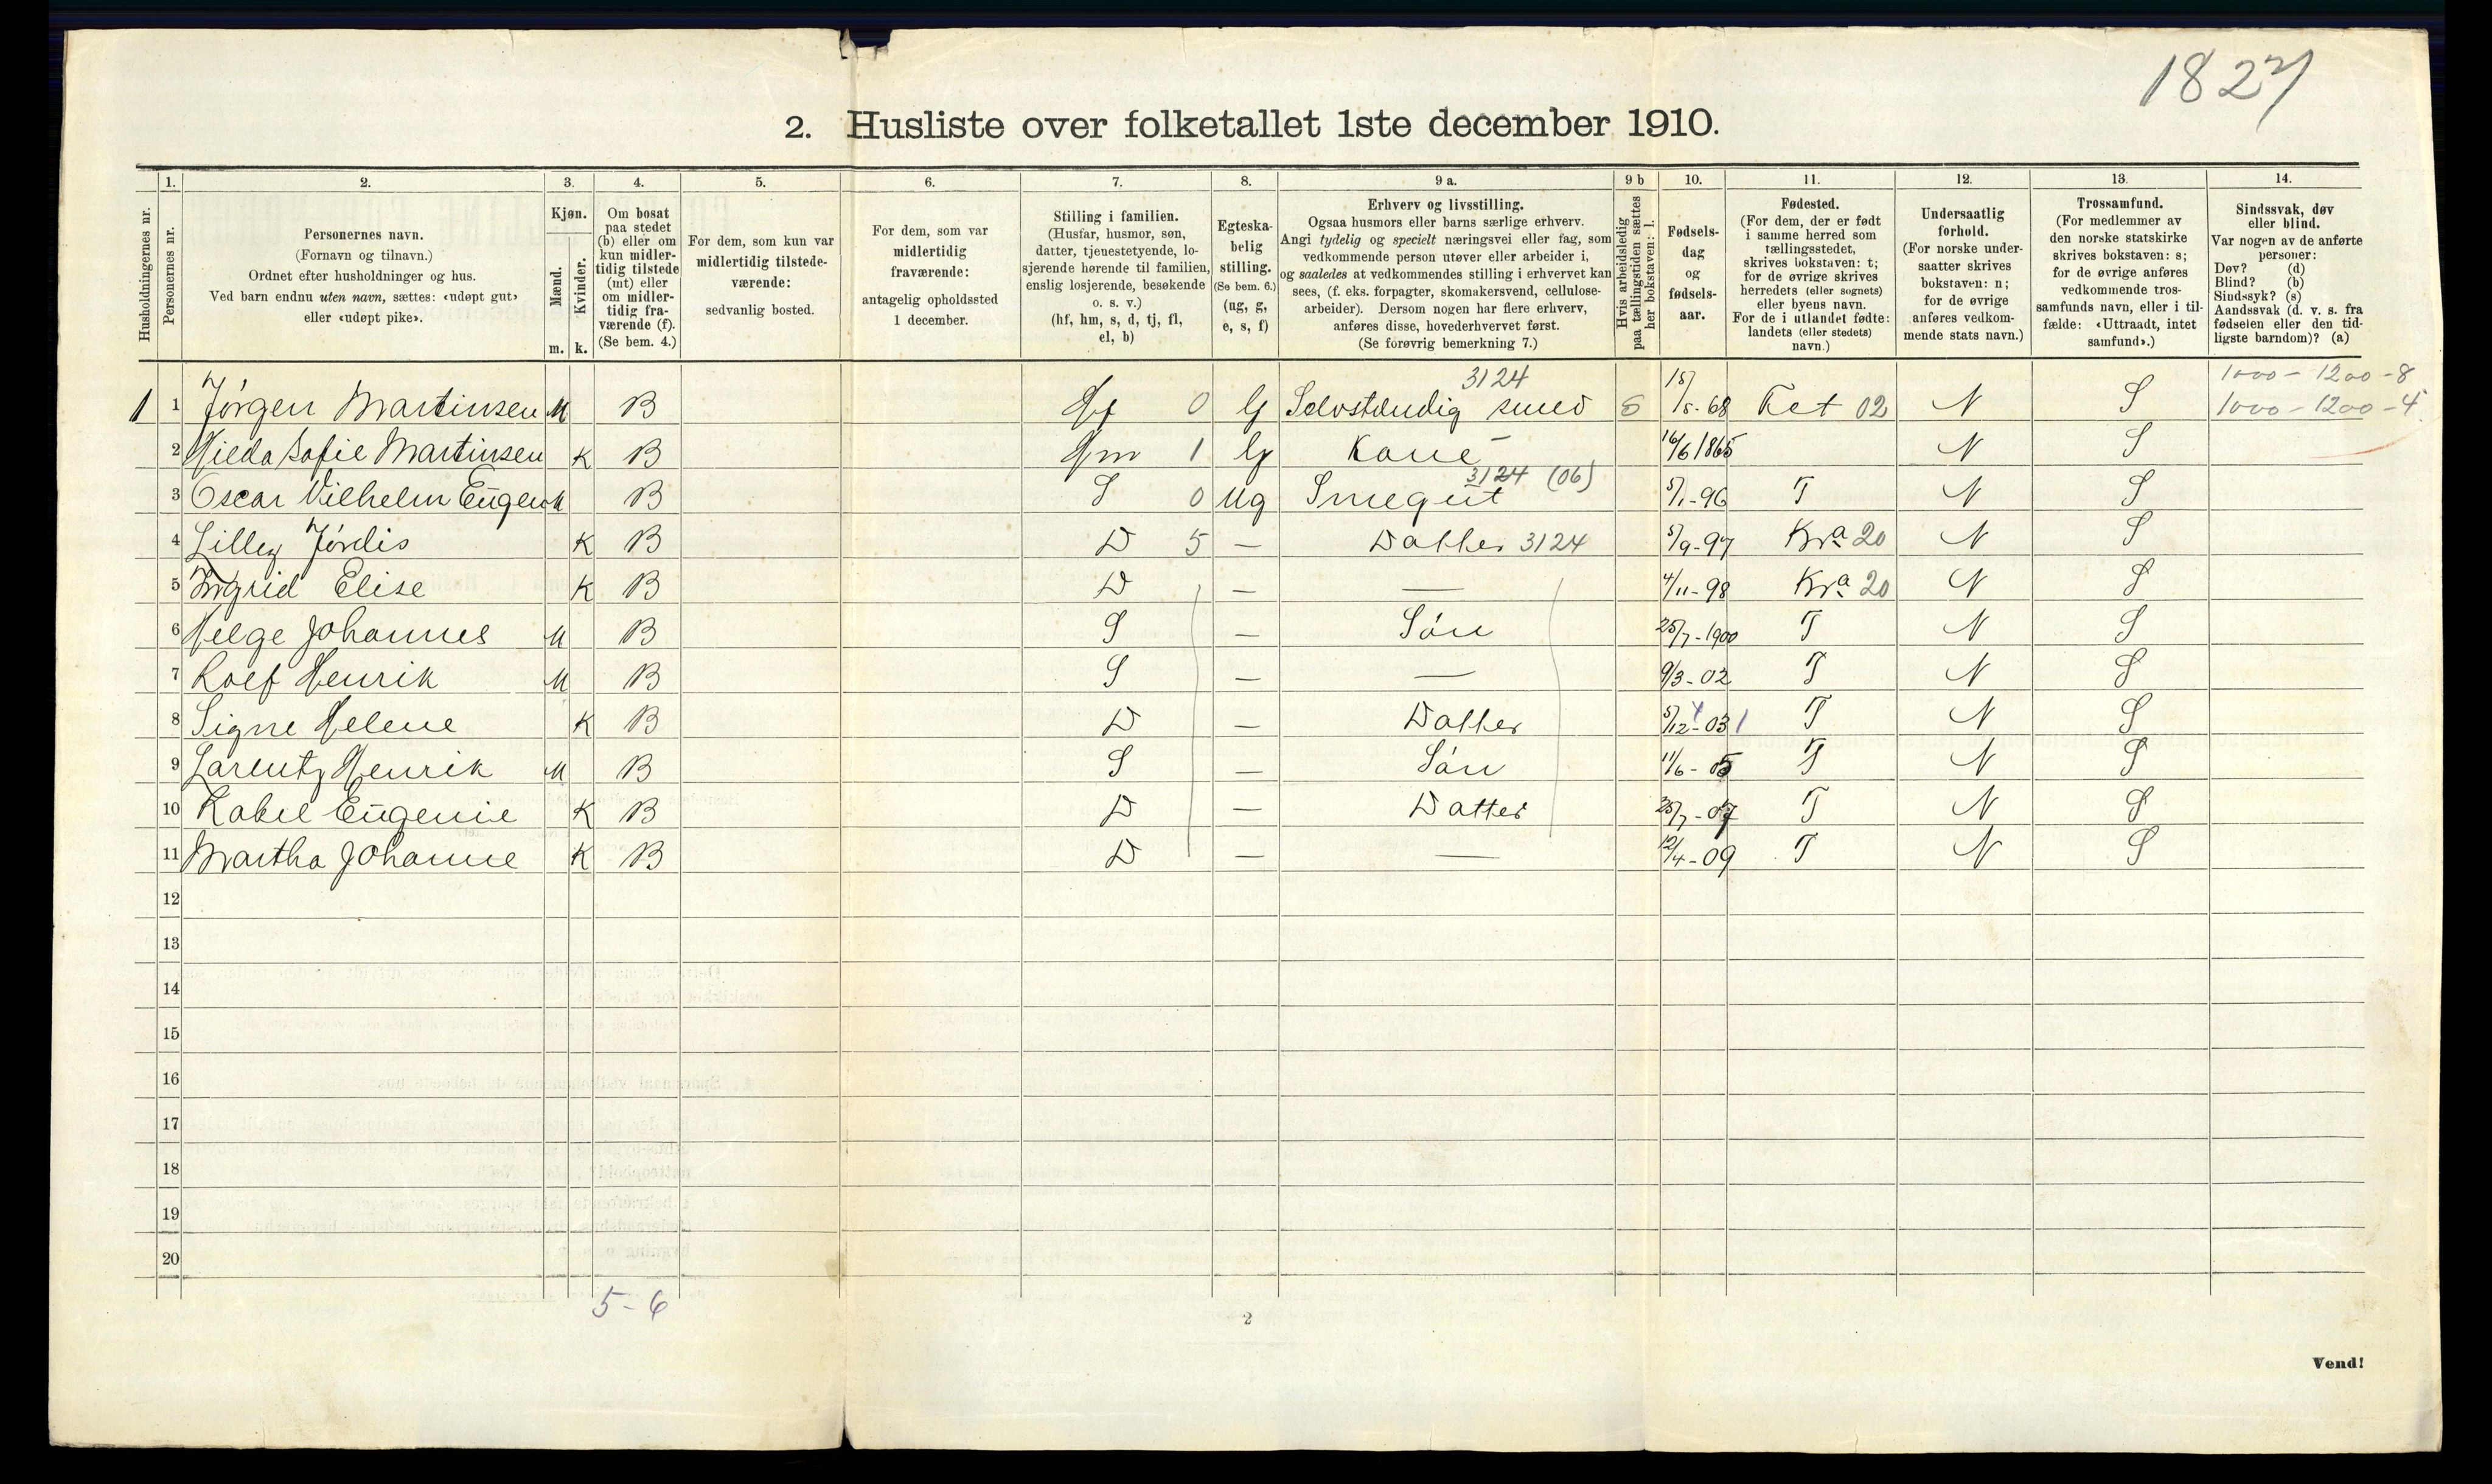 1827
2. Husliste over folketallet 1ste december 1910.
1. 2. 3. 4. 5. 6. 7. 8. 9 a. 9 b 10. 11. 12. 13. 14.
Husholdningernes nr.
Personernes nr.
Personernes navn.
(Fornavn og tilnavn.)
Ordnet efter husholdninger og hus.
Ved barn endnu uten navn, sættes: «udøpt gut»
eller «udøpt pike».
Kjøn.
Mænd.
Kvinder.
m. k.
Om bosat
paa stedet
(b) eller om
kun midler-
tidig tilstede
(mt) eller
om midler-
tidig fra-
værende (f).
(Se bem. 4.)
For dem, som kun var
midlertidig tilstede-
værende:
sedvanlig bosted.
For dem, som var
midlertidig
fraværende:
antagelig opholdssted
1 december.
Stilling i familien.
(Husfar, husmor, søn,
datter, tjenestetyende, lo-
sjerende hørende til familien,
enslig losjerende, besøkende
o. s. v.)
(hf, hm, s, d, tj, fl,
el, b)
Egteska-
belig
stilling.
(Se bem. 6.)
(ug, g,
e, s, f)
Erhverv og livsstilling.
Ogsaa husmors eller barns særlige erhverv.
Angi tydelig og specielt næringsvei eller fag, som
vedkommende person utøver eller arbeider i,
og saaledes at vedkommendes stilling i erhvervet kan
sees, (f. eks. forpagter, skomakersvend, cellulose-
arbeider). Dersom nogen har flere erhverv,
anføres disse, hovederhvervet først.
(Se forøvrig bemerkning 7.)
Hvis arbeidsledig
paa tællingstiden sættes
her bokstaven: l.
Fødsels-
dag
og
fødsels-
aar.
Fødested.
(For dem, der er født
i samme herred som
tællingsstedet,
skrives bokstaven: t;
for de øvrige skrives
herredets (eller sognets)
eller byens navn.
For de i utlandet fødte:
landets (eller stedets)
navn.)
Undersaatlig
forhold.
(For norske under-
saatter skrives
bokstaven: n;
for de øvrige
anføres vedkom-
mende stats navn.)
Trossamfund.
(For medlemmer av
den norske statskirke
skrives bokstaven: s;
for de øvrige anføres
vedkommende tros-
samfunds navn, eller i til-
fælde: «Uttraadt, intet
samfund».)
Sindssvak, døv
eller blind.
Var nogen av de anførte
personer:
Døv? (d)
Blind? (b)
Sindssyk? (s)
Aandssvak (d. v. s. fra
fødselen eller den tid-
ligste barndom)? (a)
3124 1000 - 1200 - 8
1 1 Jørgen Martinsen M B Hf 0 G Selvstændig smed S 15/5-68 Fet 02 N S 1000 - 1200 - 4
2 Hilda Sofie Martinsen K B Hm 1 G Kone 16/6 1865 N S
3124 (06)
3 Oscar Vilhelm Eugen M B S 0 Ug Smegut 5/1-96 T N S
4 Lilly Jórdis K B D 5 — Datter 3124 5/9-97 Kra 20 N S
5 Ingrid Elise K B D — — 4/11-98 Kra 20 N S
6 Helge Johannes M B S — Són 25/7-1900 T N S
7 Rolf Henrik M B S — — 9/3-02 T N S
8 Signe Helene K B D — Datter 5/12-03 T N S
9 Larentz Henrik M B S — Són 11/6-05 T N S
10 Eugenie K B D — Datter 25/7-07 T N S
11 Martha Johanne K B D — — 12/4-09 T N S
12
13
14
15
16
17
18
19
20
5-6
2
Vend!